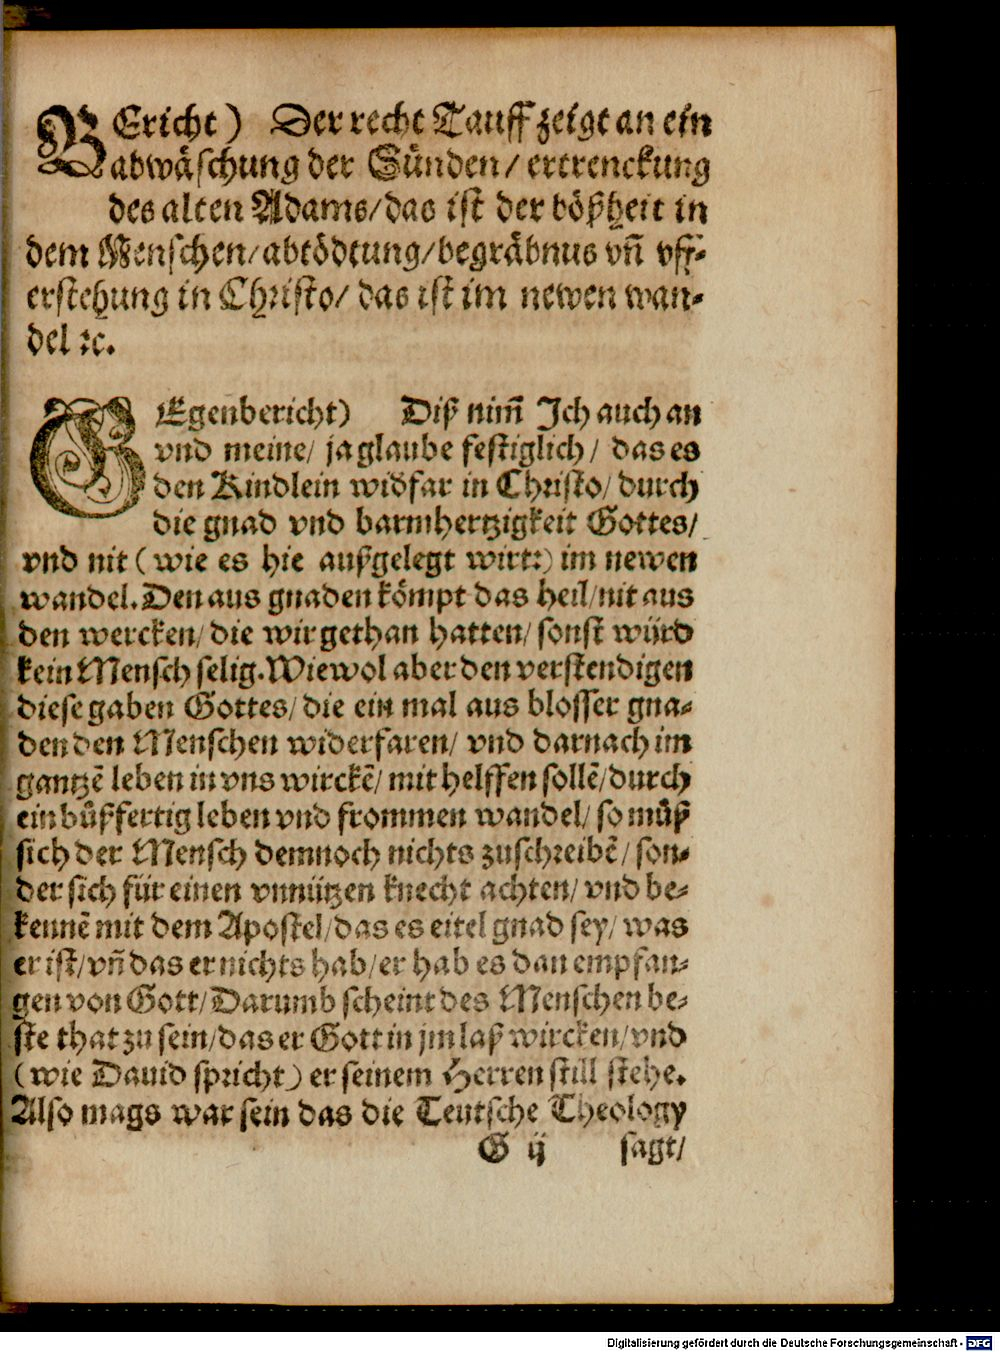 BEricht) Der recht Tauff zeigt an ein
abwäschung der Sünden/ ertrenckung
des alten Adams/das ist der bößheit in
dem Menschen/abtödtung/begräbnus vñ vff-
erstehung in Christo/ das ist im newen wan-
del ꝛc.
GEgenbericht) Diß nim̃ Ich auch an
vnd meine/ ja glaube festiglich/ das es
den Kindlein widfar in Christo/ durch
die gnad vnd barmhertzigkeit Gottes/
vnd nit (wie es hie außgelegt wirt:) im newen
wandel. Den aus gnaden kömpt das heil/nit aus
den wercken/ die wir gethan hatten/ sonst würd
kein Mensch selig. Wiewol aber den verstendigen
diese gaben Gottes/ die ein mal aus blosser gna-
den den Menschen widerfaren/ vnd darnach im
gantzē leben in vns wirckē/ mit helffen sollē/durch
ein bůßfertig leben vnd frommen wandel/ so můß
sich der Mensch demnoch nichts zuschreibē/ son-
der sich für einen vnnützen knecht achten/ vnd be-
kennē mit dem Apostel/das es eitel gnad sey/ was
er ist/vñ das er nichts hab/er hab es dan empfan-
gen von Gott/Darumb scheint des Menschen be-
ste that zu sein/das er Gott in jm laß wircken/vnd
(wie Dauid spricht) er seinem Herren still stehe.
Also mags war sein das die Teutsche Theology
G ij sagt/
Digitalisierung gefördert durch die Deutsche Forschungsgemeinschaft - DFG